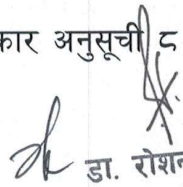 कार अनुसूची ८
डा. रोशन